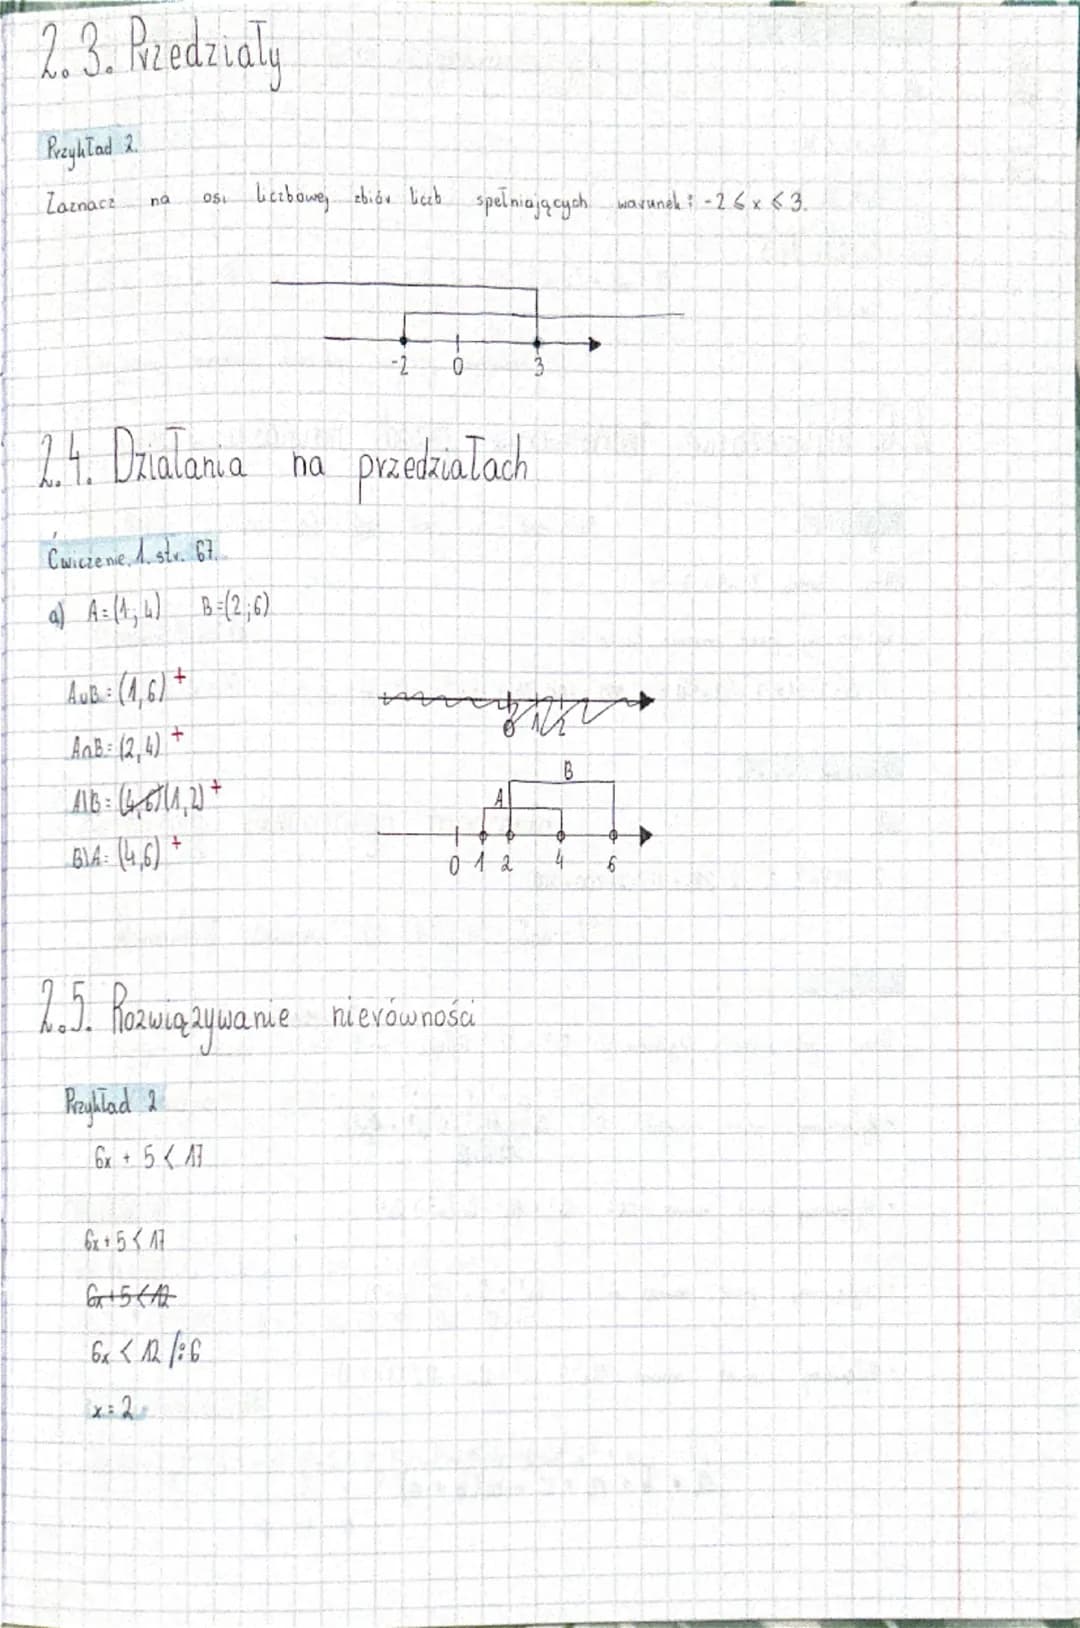 2.3. Przedziały
Przykład 2.
Zaznacz na osi liczbowej zbiór liczb spełniających warunek: -2 ≤ x ≤ 3.
-2 0 3
2.4. Działania na przedziałach
Ćwiczenie. 1. str. 67.
a) A=(1; 4) B=(2;6)
A∪B=(1,6) +
A∩B=(2,4) +
0 1 2
A\B=(4,6)(1,2) +
B\A=(4,6) +
A B
0 1 2 4 6
2.5. Rozwiązywanie nierówności
Przykład 2
6x + 5 < 17
6x + 5 < 17
6x+5<12
6x < 12 /:6
x = 2